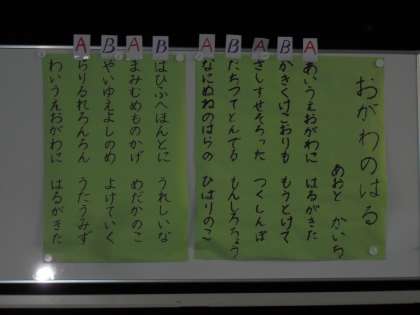 おがわのはる
あおと　かいち
A
あいうえおがわに　はるがきた
B
かきくけこおりも　もうとけて
A
さしすせそろった　つくしんぼ
B
たちつてとんでる　もんしろちょう
A
なにぬねのはらの　ひばりのこ
B
はひふへほんとに　うれしいな
A
まみむめものかげ　めだかのこ
B
やいゆえよしのめ　よけていく
A
らりるれろんろん　うたうみず
わいうえおがわに　はるがきた